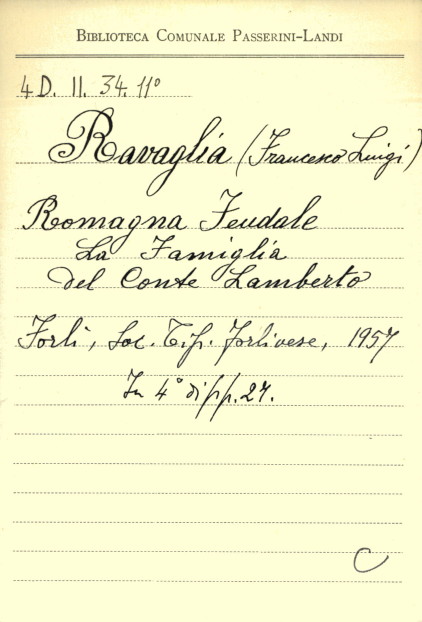 BIBLIOTECA COMUNALE PASSERINI-LANDI
4 D. II. 34. 11º
Ravaglia (Francesco Luigi)
Romagna Feudale
La Famiglia
del Conte Lamberto
Forlì, Soc. Tip. forlivese, 1957
In 4º di pp. 27.
C